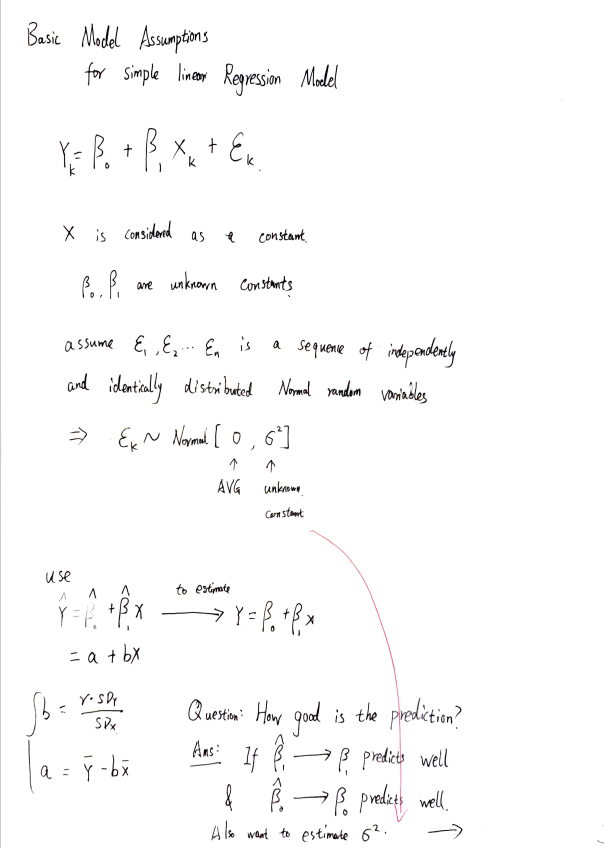 Basic Model Assumptions
for simple linear Regression Model
Yₖ = β₀ + β₁ Xₖ + Ɛₖ.
X is considered as a constant.
β₀, β₁ are unknown constants
assume Ɛ₁, Ɛ₂ ... Ɛₙ is a sequence of independently
and identically distributed Normal random variables
⇒ Ɛₖ ~ Normal [ 0 , 6²]
↑ ↑
AVG unknown
constant
use
Ŷ = β̂₀ + β̂₁ X to estimate → Y = β₀ + β₁ x
= a + bX
b = r · SDY / SDX
a = Ȳ - bx̄
Question: How good is the prediction?
Ans: If β̂₁ → β₁ predicts well
& β̂₀ → β₀ predicts well.
Also want to estimate 6². →